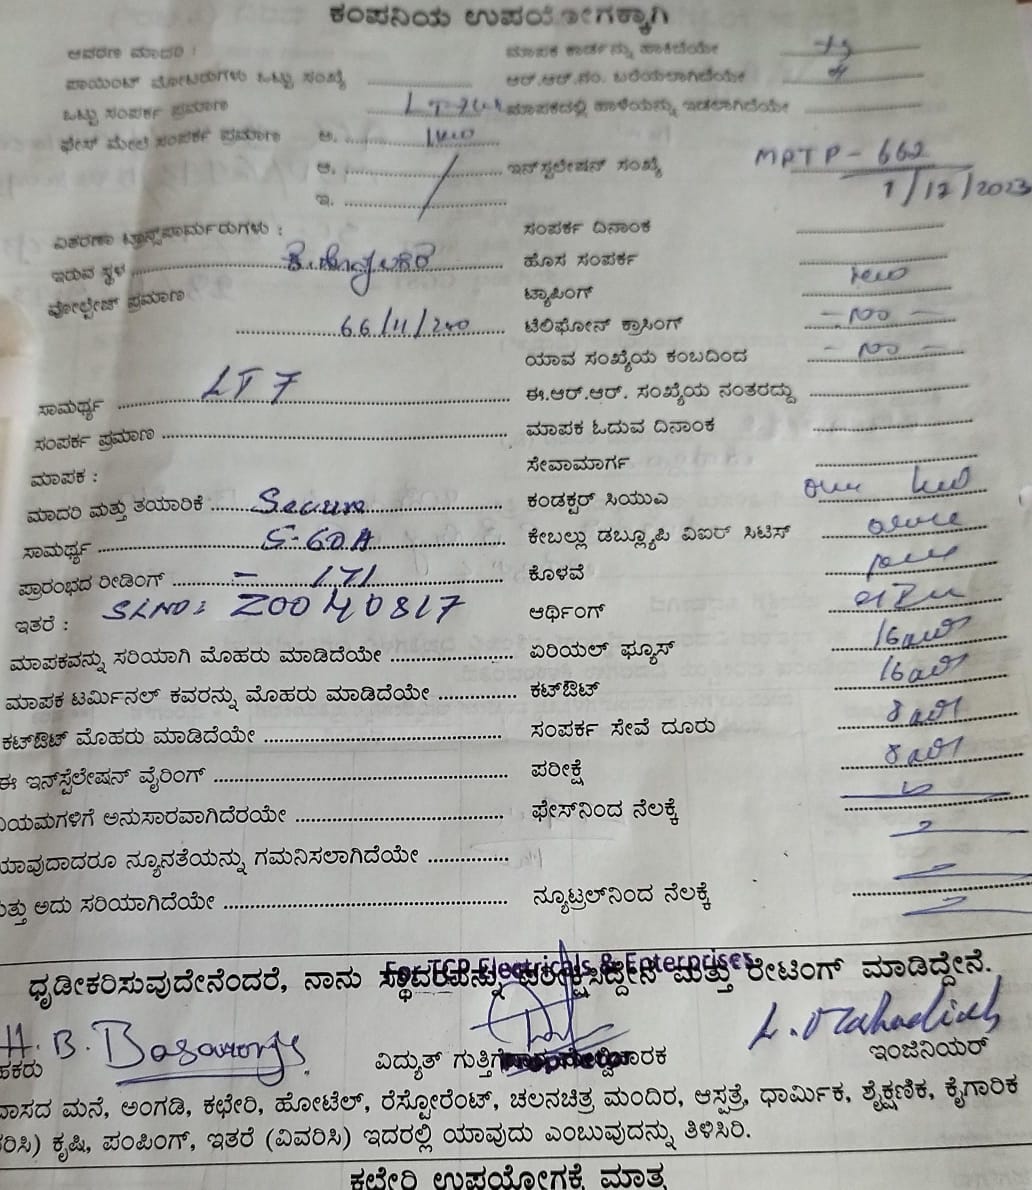 ಕಂಪನಿಯ ಉಪಯೋಗಕ್ಕಾಗಿ
ಆವರಣ ಮಾದರಿ : ಮಾಪಕ ಕಾರ್ಡನ್ನು ಹಾಕಿದೆಯೇ
ಪಾಯಿಂಟ್ ಮೋಟರುಗಳು ಒಟ್ಟು ಸಂಖ್ಯೆ ಆರ್.ಆರ್.ನಂ. ಬರೆಯಲಾಗಿದೆಯೇ
ಒಟ್ಟು ಸಂಪರ್ಕ ಪ್ರಮಾಣ ಮಾಪಕದಲ್ಲಿ ಹಾಳೆಯನ್ನು ಇಡಲಾಗಿದೆಯೇ
ಫೇಸ್ ಮೇಲೆ ಸಂಪರ್ಕ ಪ್ರಮಾಣ ಅ. 1KW
ಆ. ಇನ್‌ಸ್ಟಲೇಷನ್ ಸಂಖ್ಯೆ MPTP - 662
ಇ. 1/12/2023
ವಿತರಣಾ ಟ್ರಾನ್ಸ್‌ಫಾರ್ಮರುಗಳು : ಸಂಪರ್ಕ ದಿನಾಂಕ
ಇರುವ ಸ್ಥಳ ಹೊಸ ಸಂಪರ್ಕ
ವೋಲ್ಟೇಜ್ ಪ್ರಮಾಣ ಟ್ಯಾಪಿಂಗ್
66/11/240 ಟೆಲಿಫೋನ್ ಕ್ರಾಸಿಂಗ್ - no -
ಯಾವ ಸಂಖ್ಯೆಯ ಕಂಬದಿಂದ - no -
ಸಾಮರ್ಥ್ಯ LT 7 ಈ.ಆರ್.ಆರ್. ಸಂಖ್ಯೆಯ ನಂತರದ್ದು
ಸಂಪರ್ಕ ಪ್ರಮಾಣ ಮಾಪಕ ಓದುವ ದಿನಾಂಕ
ಮಾಪಕ : ಸೇವಾಮಾರ್ಗ
ಮಾದರಿ ಮತ್ತು ತಯಾರಿಕೆ Secure ಕಂಡಕ್ಟರ್ ಸಿಯುಎ
ಸಾಮರ್ಥ್ಯ 5-60A ಕೇಬಲ್ಲು ಡಬ್ಲ್ಯೂಪಿ ವಿಐಆರ್ ಸಿಟಿಸ್
ಪ್ರಾರಂಭದ ರೀಡಿಂಗ್ ಕೊಳವೆ
ಇತರೆ : SLNO: Z0040817 ಆರ್ಥಿಂಗ್
ಮಾಪಕವನ್ನು ಸರಿಯಾಗಿ ಮೊಹರು ಮಾಡಿದೆಯೇ ಏರಿಯಲ್ ಫ್ಯೂಸ್
ಮಾಪಕ ಟರ್ಮಿನಲ್ ಕವರನ್ನು ಮೊಹರು ಮಾಡಿದೆಯೇ ಕಟ್‌ಔಟ್
ಕಟ್‌ಔಟ್ ಮೊಹರು ಮಾಡಿದೆಯೇ ಸಂಪರ್ಕ ಸೇವೆ ದೂರು
ಈ ಇನ್‌ಸ್ಟೆಲೇಷನ್ ವೈರಿಂಗ್ ಪರೀಕ್ಷೆ
ಯಮಗಳಿಗೆ ಅನುಸಾರವಾಗಿದೆರಯೇ ಫೇಸ್‌ನಿಂದ ನೆಲಕ್ಕೆ
ಯಾವುದಾದರೂ ನ್ಯೂನತೆಯನ್ನು ಗಮನಿಸಲಾಗಿದೆಯೇ
ಮತ್ತು ಅದು ಸರಿಯಾಗಿದೆಯೇ ನ್ಯೂಟ್ರಲ್‌ನಿಂದ ನೆಲಕ್ಕೆ
For TGP Electricals & Enterprises
ಧೃಡೀಕರಿಸುವುದೇನೆಂದರೆ, ನಾನು ಸ್ಥಾವರವನ್ನು ಪರೀಕ್ಷಿಸಿದ್ದೇನೆ ಮತ್ತು ರೇಟಿಂಗ್ ಮಾಡಿದ್ದೇನೆ.
H. B. Basavaraju
ಹಕರು ವಿದ್ಯುತ್ ಗುತ್ತಿಗೆ ಇಂಜಿನಿಯರ್
ವಾಸದ ಮನೆ, ಅಂಗಡಿ, ಕಛೇರಿ, ಹೋಟೆಲ್, ರೆಸ್ಟೋರೆಂಟ್, ಚಲನಚಿತ್ರ ಮಂದಿರ, ಆಸ್ಪತ್ರೆ, ಧಾರ್ಮಿಕ, ಶೈಕ್ಷಣಿಕ, ಕೈಗಾರಿಕ
ರಿಸಿ) ಕೃಷಿ, ಪಂಪಿಂಗ್, ಇತರೆ (ವಿವರಿಸಿ) ಇದರಲ್ಲಿ ಯಾವುದು ಎಂಬುವುದನ್ನು ತಿಳಿಸಿರಿ.
ಕಛೇರಿ ಉಪಯೋಗಕ್ಕೆ ಮಾತ್ರ